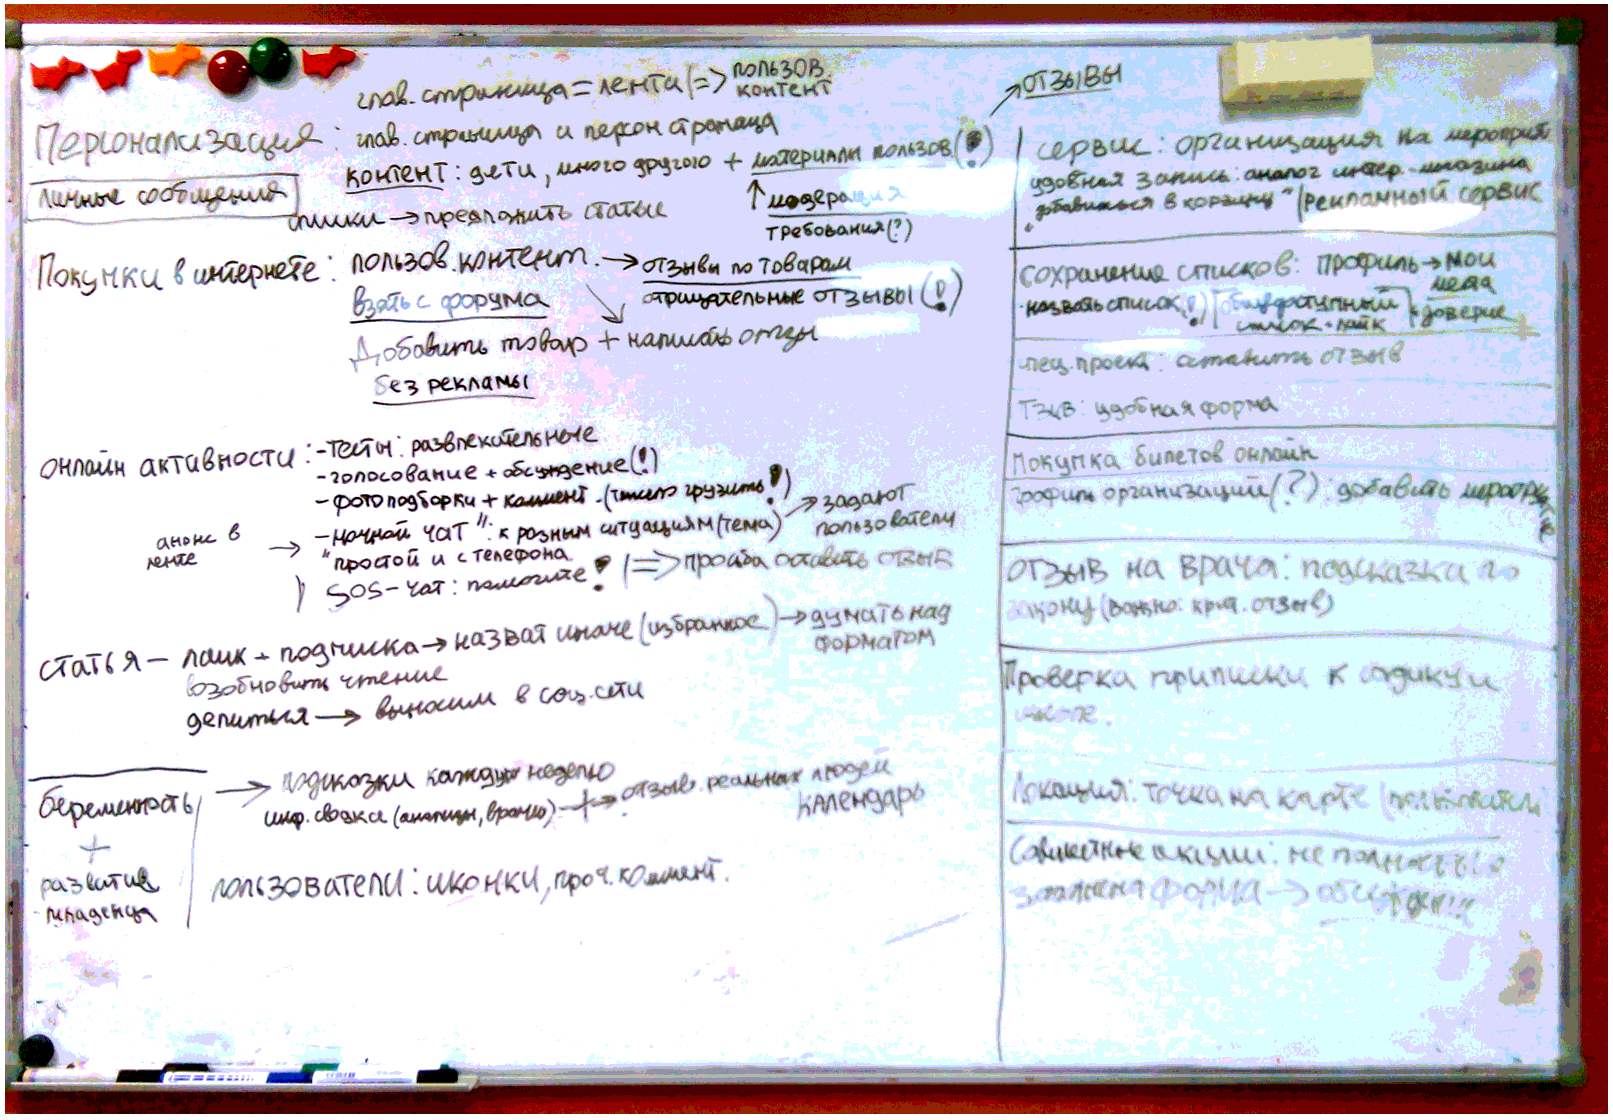 глав. страница = лента => пользов контент
Персонализация: глав. страница и персон страница
контент: дети, много другого + материалы пользов (!)
→ отзывы
личные сообщения
списки → предложить статьи
↑ модерация
требования (?)
Покупки в интернете: пользов. контент. → отзывы по товарам
отрицательные отзывы (!)
взять с форума
Добавить товар + написать отзы
без рекламы
онлайн активности: - тесты: развлекательные
- голосование + обсуждение (!)
- фотоподборки + коммент. (тяжело грузить!)
- "ночной чат": к разным ситуациям (тема) → задают пользователи
простой и с телефона
анонс в ленте →
SOS-чат: помогите! => просьба оставить отзыв
статья — лайк + подписка → назват иначе (избранное) → думать над форматом
возобновить чтение
делиться → выносим в соц. сети
беременность
+
развитие
младенца
→ подсказки каждую неделю
инф. сводка (анализы, врачи) + → отзывы реальных людей
календарь
пользователи: иконки, проч. коммент.
сервис: организация на мероприят
удобная запись: аналог интер. магазина
"добавиться в корзину" / рекламный сервис
Сохранение списков: профиль → мои места
назвать список (!) общедоступный список + лайк доверие
спец. проект: оставить отзыв
отзыв: удобная форма
Покупка билетов онлайн
профиль организаций (?): добавить меропри
отзыв на врача: подсказка по
закону (важно: кр-й. отзыв)
Проверка приписки к садику и
школе.
Локация: точка на карте (пользователи)
Совместные акции: не полностью
форма → обсуждаем!!!